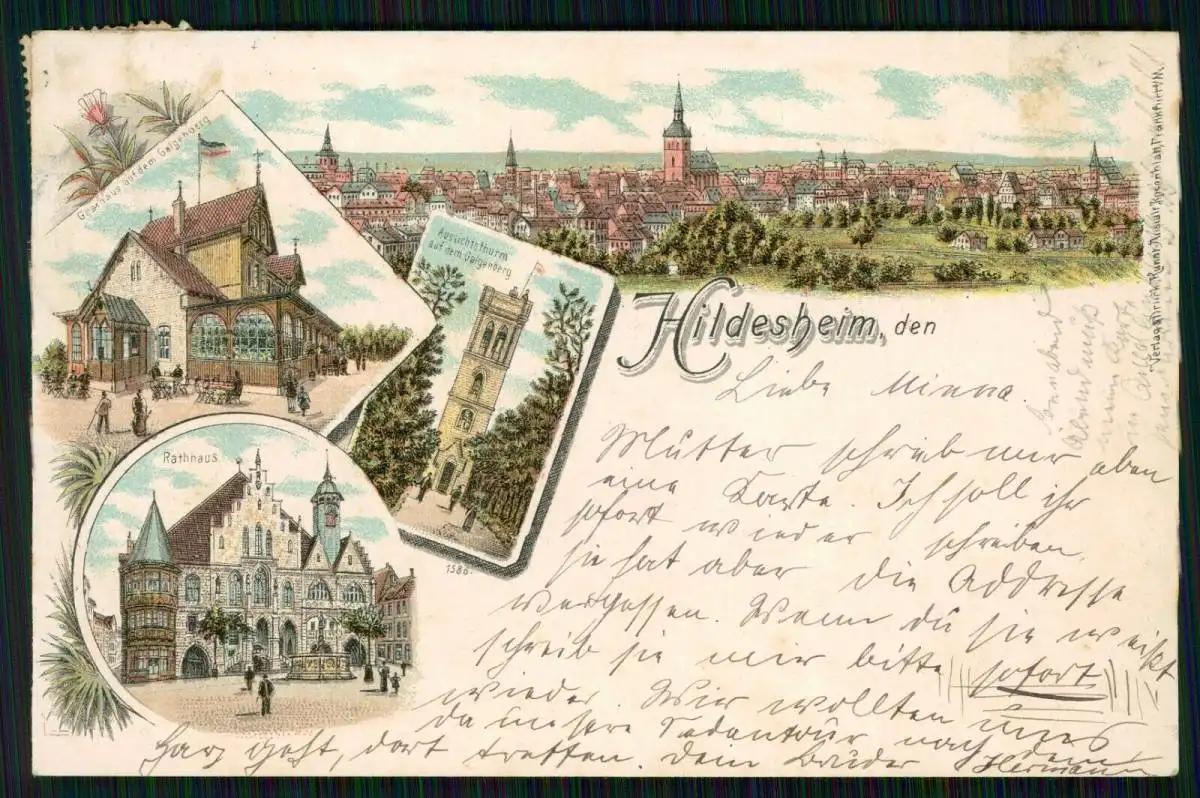 Gasthaus auf dem Galgenberg
Aussichtsthurm
auf dem Galgenberg
Rathhaus
1586.
Hildesheim, den
Liebe Minna.
Mutter schrieb mir eben
eine Karte. Ich soll ihr
sofort wieder schreiben
sie hat aber die Addresse
vergessen. Wenn du sie weißt
schreib sie mir bitte sofort
wieder. Wir wollten uns
da unsere Tour nach dem
Harz geht, dort treffen. Dein Bruder Hermann
Sonnabend
Abend muß
Verlag Kunst Rosenblatt, Frankfurt a/M.